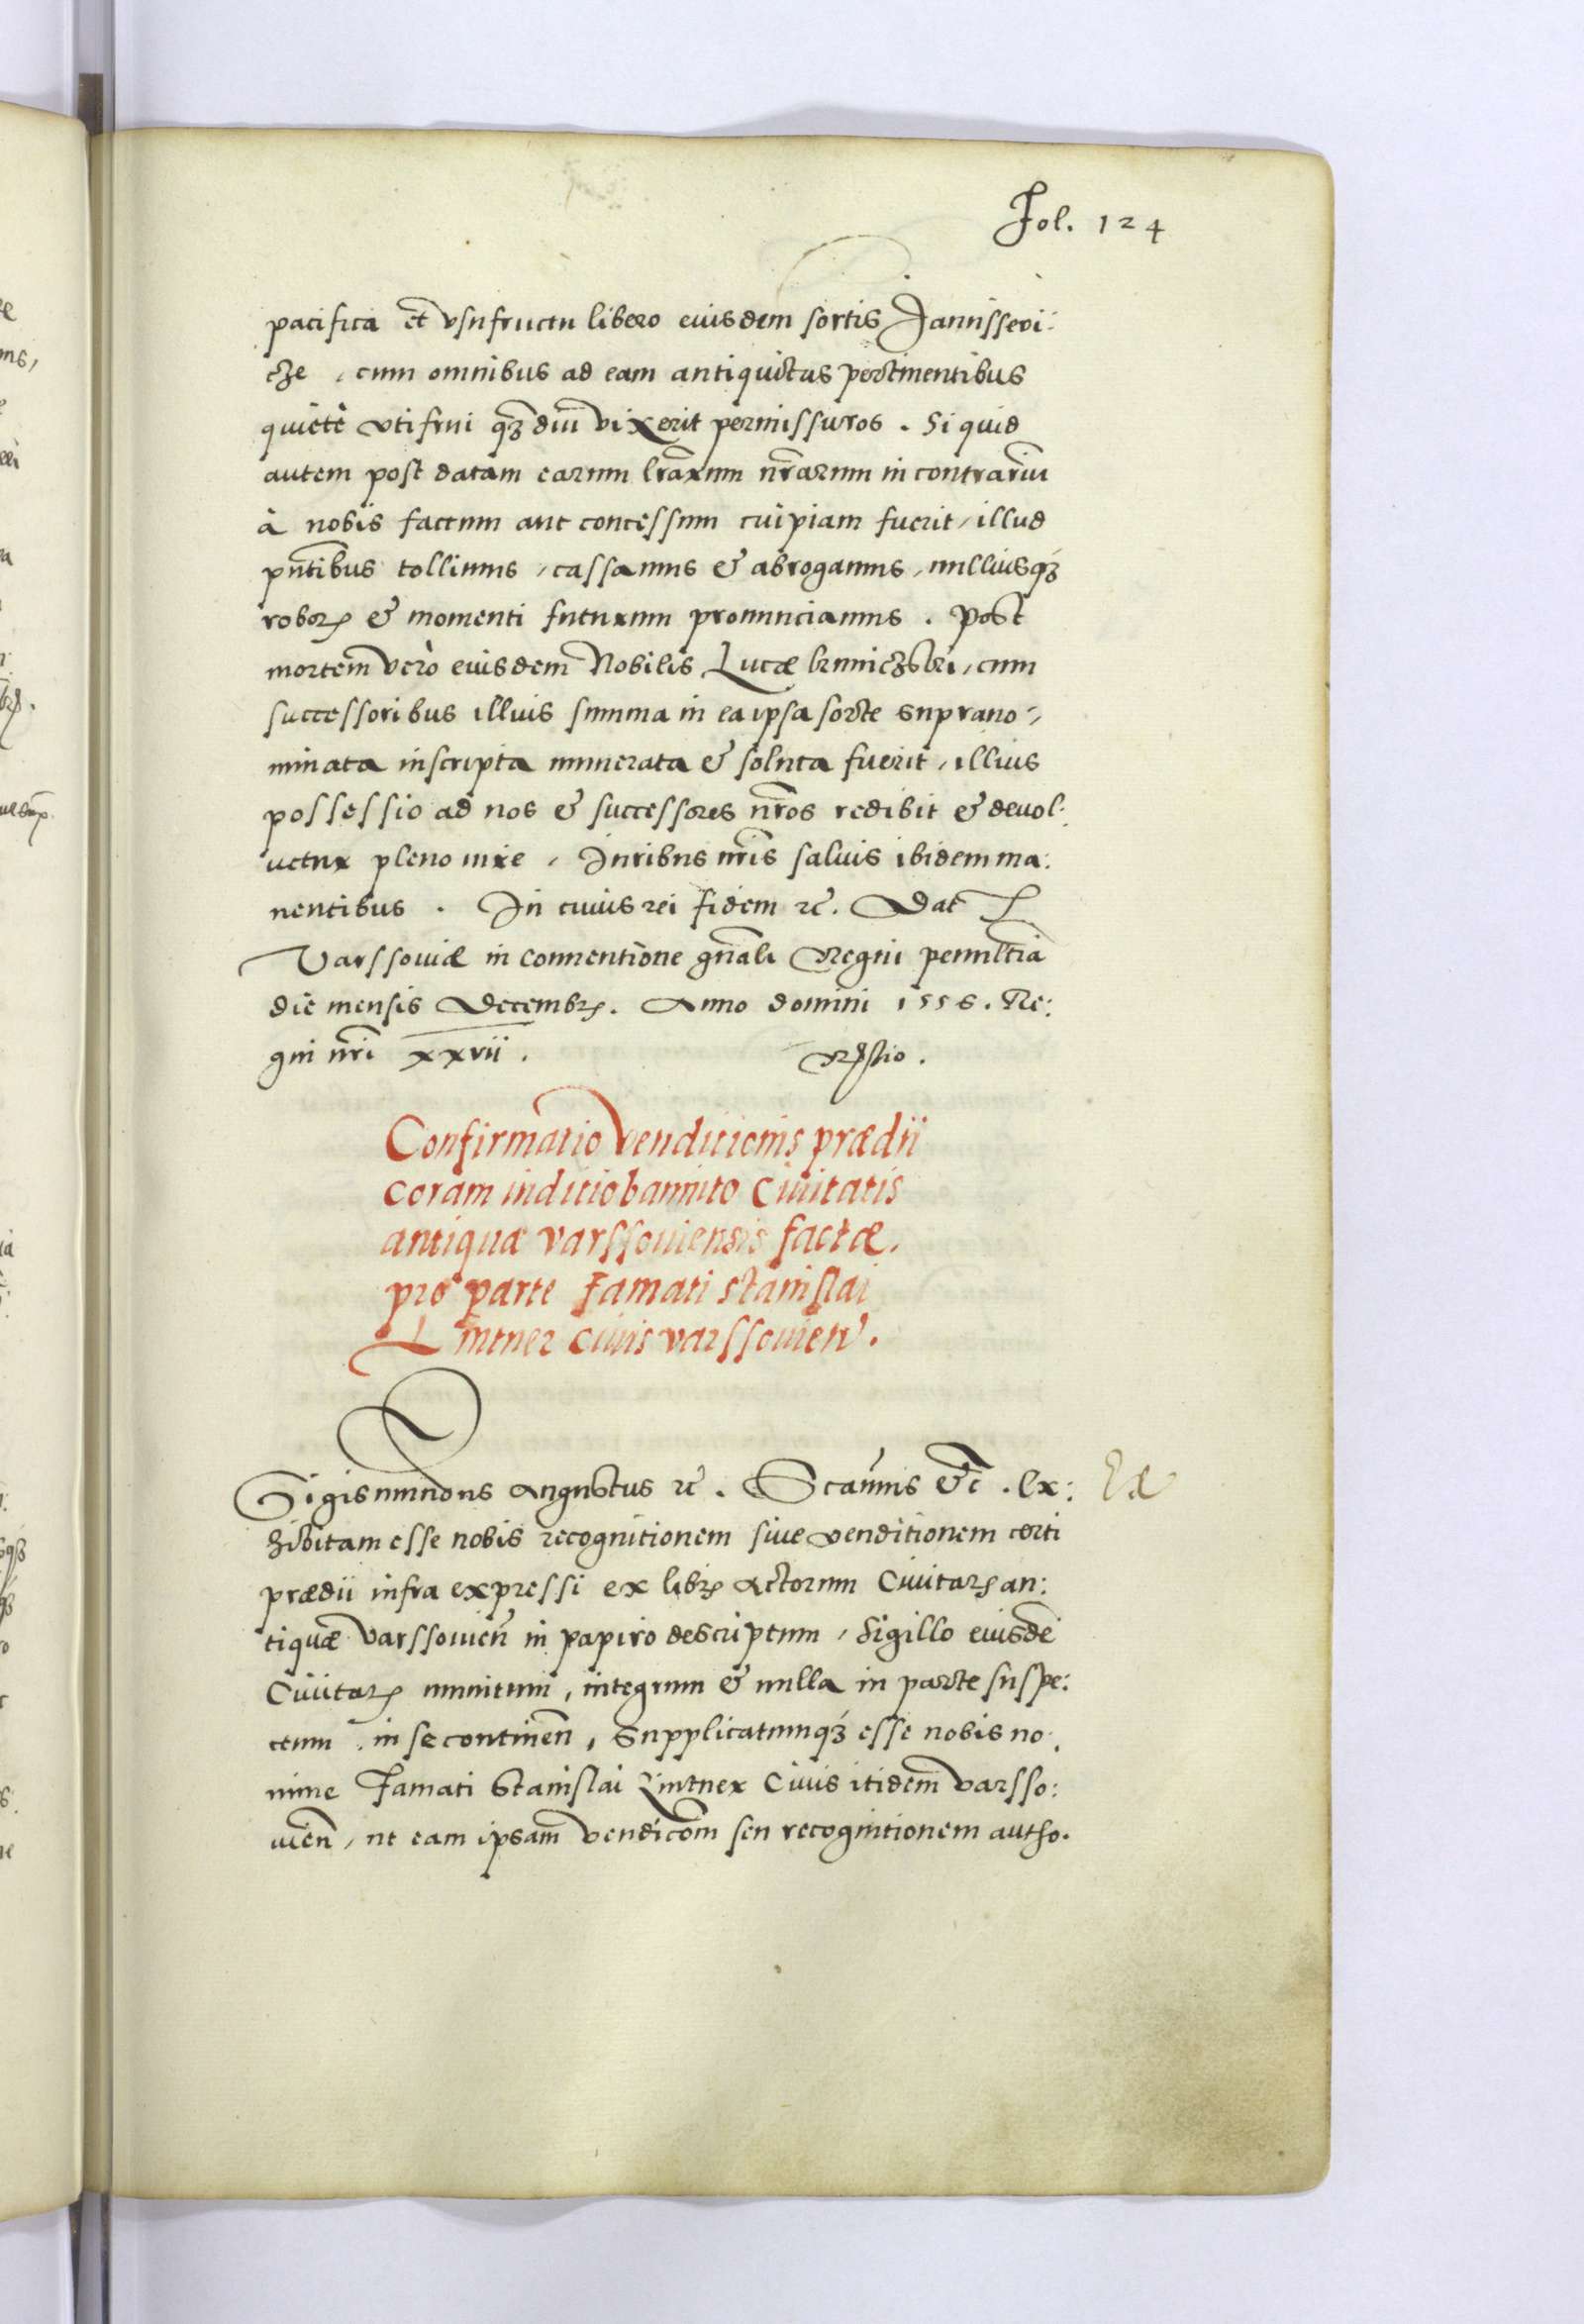 Fol. 124
pacifica et vsufructu libero eiusdem sortis Janissevi:
cze, cum omnibus ad eam antiquitus pertinentibus
quietè vti frui qz diu vixerit permissuros. Si quid
autem post datam earum lrarum nrarum in contrariu
à nobis factum aut concessum cuipiam fuerit, illud
pntibus tollimus, cassamus & abrogamus, nulliusqz
robor & momenti futurum pronunciamus. Post
mortem verò eiusdem Nobilis Lucæ, cum
successoribus illius summa in ea ipsa sorte suprano-
minata inscripta numerata & soluta fuerit, illius
possessio ad nos & successores nros redibit & devol:
uetur pleno iure, Iuribus nris saluis ibidem ma:
nentibus. In cuius rei fidem &c. Dat
Varssouiæ in conuentione gnali Regni penultia
die mensis Decembr. Anno domini 1556. Re:
gni nri xxvii.
Confirmatio venditionis prædii
coram iuditio bannito Ciuitatis
antiquæ varssouiensis factæ.
pro parte Famati stanislai
Lintner ciuis varssouien.
Sigismundus Augustus &c. Scaimus &c. Ex:
hibitam esse nobis recognitionem siue venditionem certi
prædii infra expressi ex libr Actorum Ciuitatis an:
tiquæ Varssouien in papiro descriptum, Sigillo eiusde
Ciuitatis munitum, integrum & nulla in parte suspe:
ctum, in se continen, Supplicatumqz esse nobis no:
mine Famati Stanislai Lintner Ciuis itidem varsso:
uien, ut eam ipsam vendicom seu recognitionem autho.